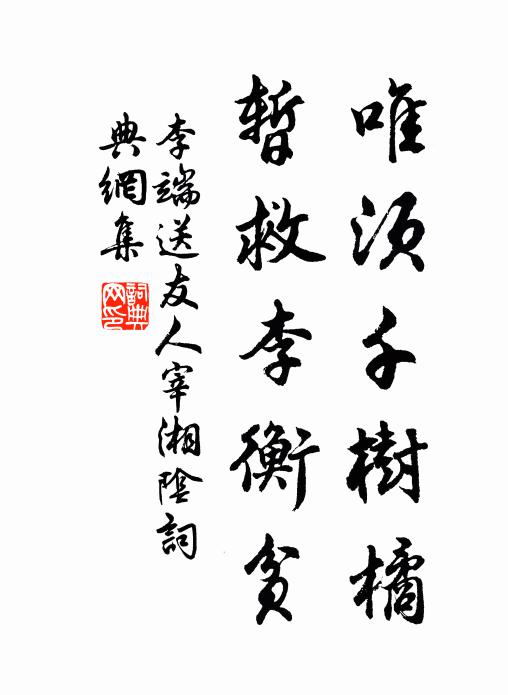 唯須千樹橘
暫救李衡貧
李端送友人宰湘陰詞
典網集
詞典
网印